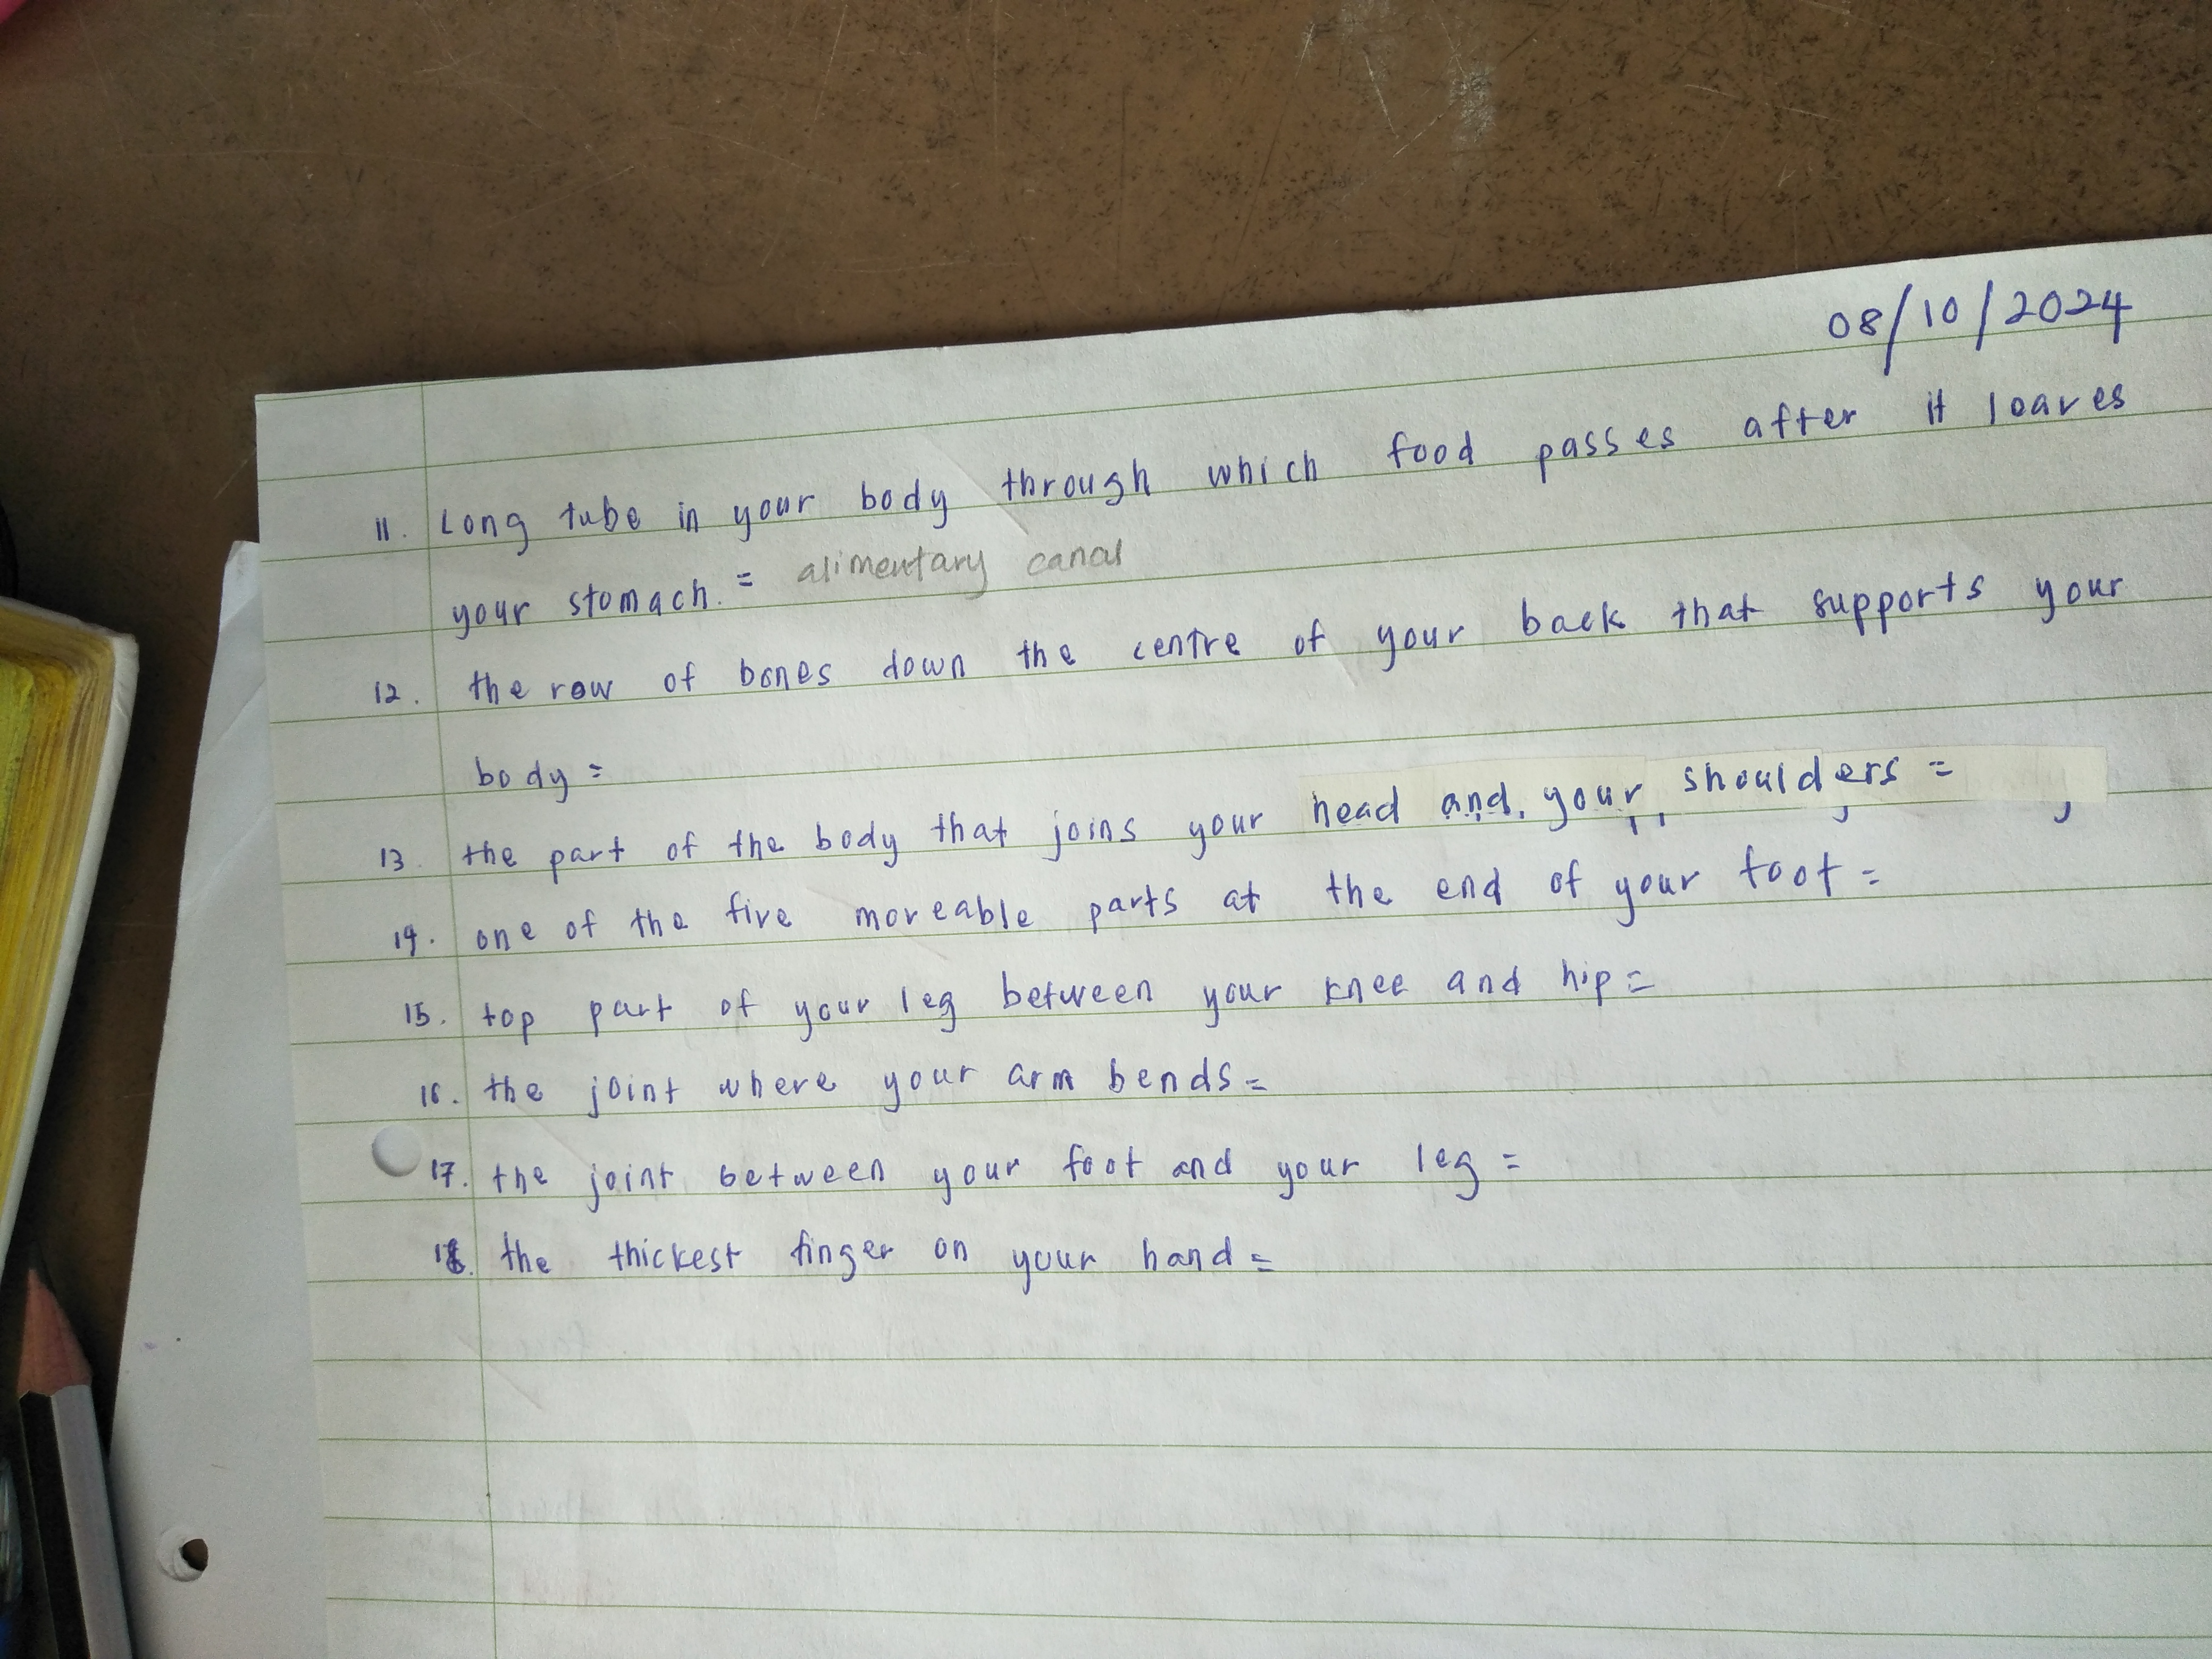 08/10/2024
11. Long tube in your body through which food passes after it leaves
your stomach. = alimentary canal
12. the row of bones down the centre of your back that supports your
body =
13. the part of the body that joins your head and your shoulders =
14. one of the five moveable parts at the end of your foot =
15. top part of your leg between your knee and hip =
16. the joint where your arm bends =
17. the joint between your foot and your leg =
18. the thickest finger on your hand =